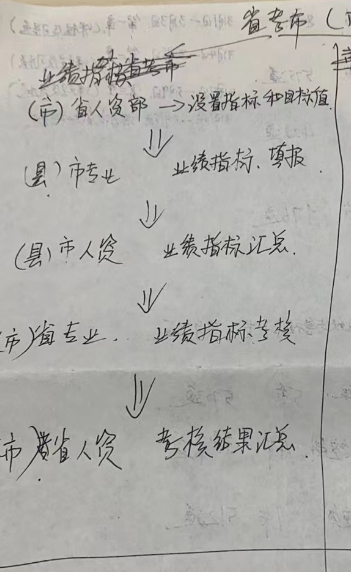 省考市（
业绩指标省考市
（市）省人资部 → 设置指标和目标值
⇓
（县）市专业 业绩指标、填报
⇓
（县）市人资 业绩指标汇总.
⇓
市）省专业.. 业绩指标考核
⇓
市）省人资 考核结果汇总.